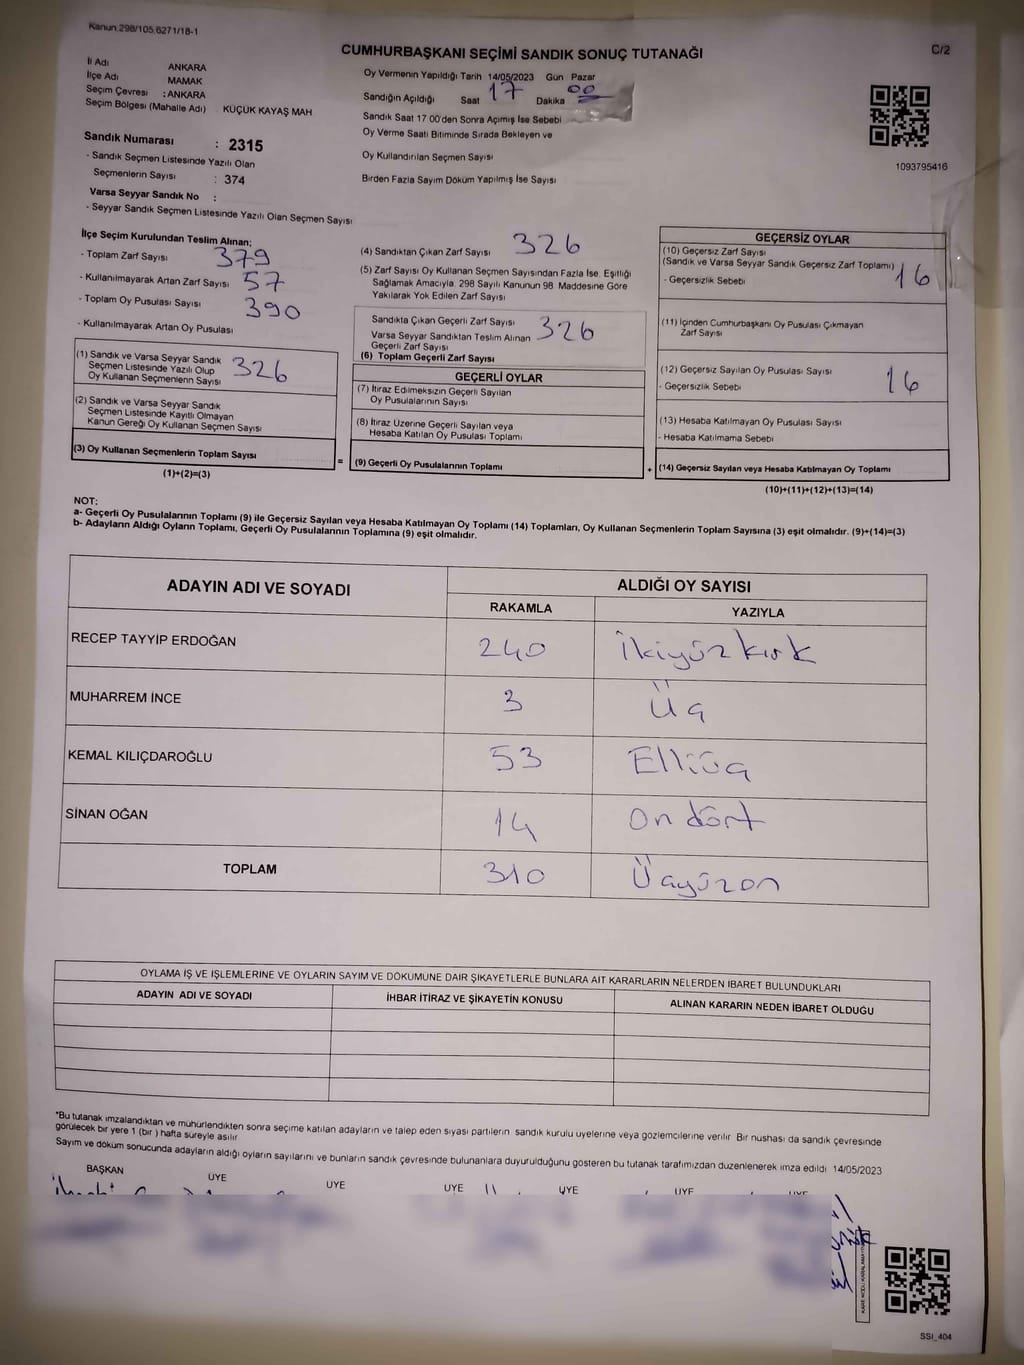 Kanun 298/105,6271/18-1
CUMHURBAŞKANI SEÇİMİ SANDIK SONUÇ TUTANAĞI
C/2
İl Adı ANKARA
İlçe Adı MAMAK
Seçim Çevresi : ANKARA
Seçim Bölgesi (Mahalle Adı) KÜÇÜK KAYAŞ MAH
Sandık Numarası : 2315
- Sandık Seçmen Listesinde Yazılı Olan
Seçmenlerin Sayısı : 374
Varsa Seyyar Sandık No :
- Seyyar Sandık Seçmen Listesinde Yazılı Olan Seçmen Sayısı
Oy Vermenin Yapıldığı Tarih 14/05/2023 Gün Pazar
Sandığın Açıldığı Saat 17 Dakika 00
Sandık Saat 17 00'den Sonra Açılmış İse Sebebi
Oy Verme Saati Bitiminde Sırada Bekleyen ve
Oy Kullandırılan Seçmen Sayısı
Birden Fazla Sayım Döküm Yapılmış İse Sayısı
1093795416
İlçe Seçim Kurulundan Teslim Alınan;
- Toplam Zarf Sayısı 379
- Kullanılmayarak Artan Zarf Sayısı 57
- Toplam Oy Pusulası Sayısı 390
- Kullanılmayarak Artan Oy Pusulası
(1) Sandık ve Varsa Seyyar Sandık
Seçmen Listesinde Yazılı Olup
Oy Kullanan Seçmenlerin Sayısı 326
(2) Sandık ve Varsa Seyyar Sandık
Seçmen Listesinde Kayıtlı Olmayan
Kanun Gereği Oy Kullanan Seçmen Sayısı
(3) Oy Kullanan Seçmenlerin Toplam Sayısı
(1)+(2)=(3)
(4) Sandıktan Çıkan Zarf Sayısı 326
(5) Zarf Sayısı Oy Kullanan Seçmen Sayısından Fazla İse, Eşitliği
Sağlamak Amacıyla, 298 Sayılı Kanunun 98. Maddesine Göre
Yakılarak Yok Edilen Zarf Sayısı
Sandıkta Çıkan Geçerli Zarf Sayısı 326
Varsa Seyyar Sandıktan Teslim Alınan
Geçerli Zarf Sayısı
(6) Toplam Geçerli Zarf Sayısı
GEÇERLİ OYLAR
(7) İtiraz Edilmeksizin Geçerli Sayılan
Oy Pusulalarının Sayısı
(8) İtiraz Üzerine Geçerli Sayılan veya
Hesaba Katılan Oy Pusulası Toplamı
= (9) Geçerli Oy Pusulalarının Toplamı
GEÇERSİZ OYLAR
(10) Geçersiz Zarf Sayısı
(Sandık ve Varsa Seyyar Sandık Geçersiz Zarf Toplamı) 16
- Geçersizlik Sebebi
(11) İçinden Cumhurbaşkanı Oy Pusulası Çıkmayan
Zarf Sayısı
(12) Geçersiz Sayılan Oy Pusulası Sayısı 16
- Geçersizlik Sebebi
(13) Hesaba Katılmayan Oy Pusulası Sayısı
- Hesaba Katılmama Sebebi
+ (14) Geçersiz Sayılan veya Hesaba Katılmayan Oy Toplamı
(10)+(11)+(12)+(13)=(14)
NOT:
a- Geçerli Oy Pusulalarının Toplamı (9) ile Geçersiz Sayılan veya Hesaba Katılmayan Oy Toplamı (14) Toplamları, Oy Kullanan Seçmenlerin Toplam Sayısına (3) eşit olmalıdır. (9)+(14)=(3)
b- Adayların Aldığı Oyların Toplamı, Geçerli Oy Pusulalarının Toplamına (9) eşit olmalıdır.
ADAYIN ADI VE SOYADI
ALDIĞI OY SAYISI
RAKAMLA YAZIYLA
RECEP TAYYİP ERDOĞAN 240 İkiyüzkırk
MUHARREM İNCE 3 Üç
KEMAL KILIÇDAROĞLU 53 Elliüç
SİNAN OĞAN 14 On dört
TOPLAM 310 Üçyüzon
OYLAMA İŞ VE İŞLEMLERİNE VE OYLARIN SAYIM VE DÖKÜMÜNE DAİR ŞİKAYETLERLE BUNLARA AİT KARARLARIN NELERDEN İBARET BULUNDUKLARI
ADAYIN ADI VE SOYADI İHBAR İTİRAZ VE ŞİKAYETİN KONUSU ALINAN KARARIN NEDEN İBARET OLDUĞU
*Bu tutanak imzalandıktan ve mühürlendikten sonra seçime katılan adayların ve talep eden siyasi partilerin sandık kurulu üyelerine veya gözlemcilerine verilir Bir nüshası da sandık çevresinde
görülecek bir yere 1 (bir) hafta süreyle asılır
Sayım ve döküm sonucunda adayların aldığı oyların sayılarını ve bunların sandık çevresinde bulunanlara duyurulduğunu gösteren bu tutanak tarafımızdan düzenlenerek imza edildi 14/05/2023
BAŞKAN ÜYE ÜYE ÜYE ÜYE ÜYE ÜYE
SSI_404